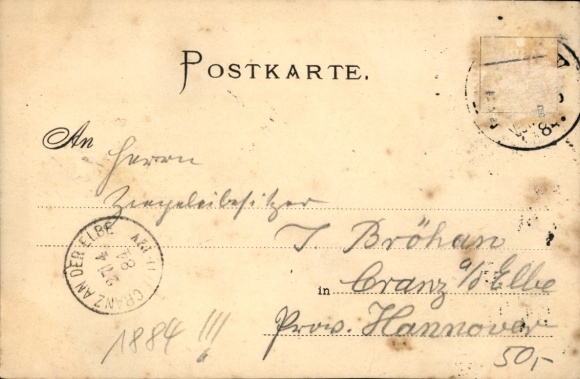 POSTKARTE.
An Herrn
Ziegeleibesitzer
J. Bröhan
in Cranz a/d Elbe
Prov. Hannover
CRANZ AN DER ELBE
27 4
84
1884 !!!
50,-